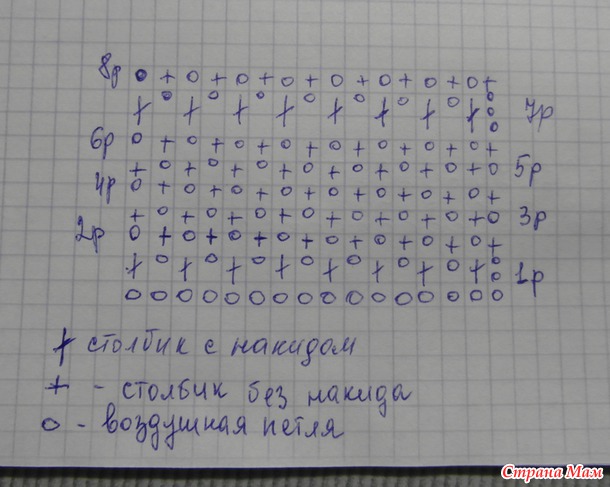 8р o + o + o + o + o + o + o + o +
† o † o † o † o † o † o † o † o 7р
o
o
6р o + o + o + o + o + o + o + o +
+ o + o + o + o + o + o + o + o 5р
4р o + o + o + o + o + o + o + o +
+ o + o + o + o + o + o + o + o 3р
2р o + o + o + o + o + o + o + o +
† o † o † o † o † o † o † o † o 1р
o
o o o o o o o o o o o o o o o o
† столбик с накидом
+ - столбик без накида
o - воздушная петля
Страна Мам